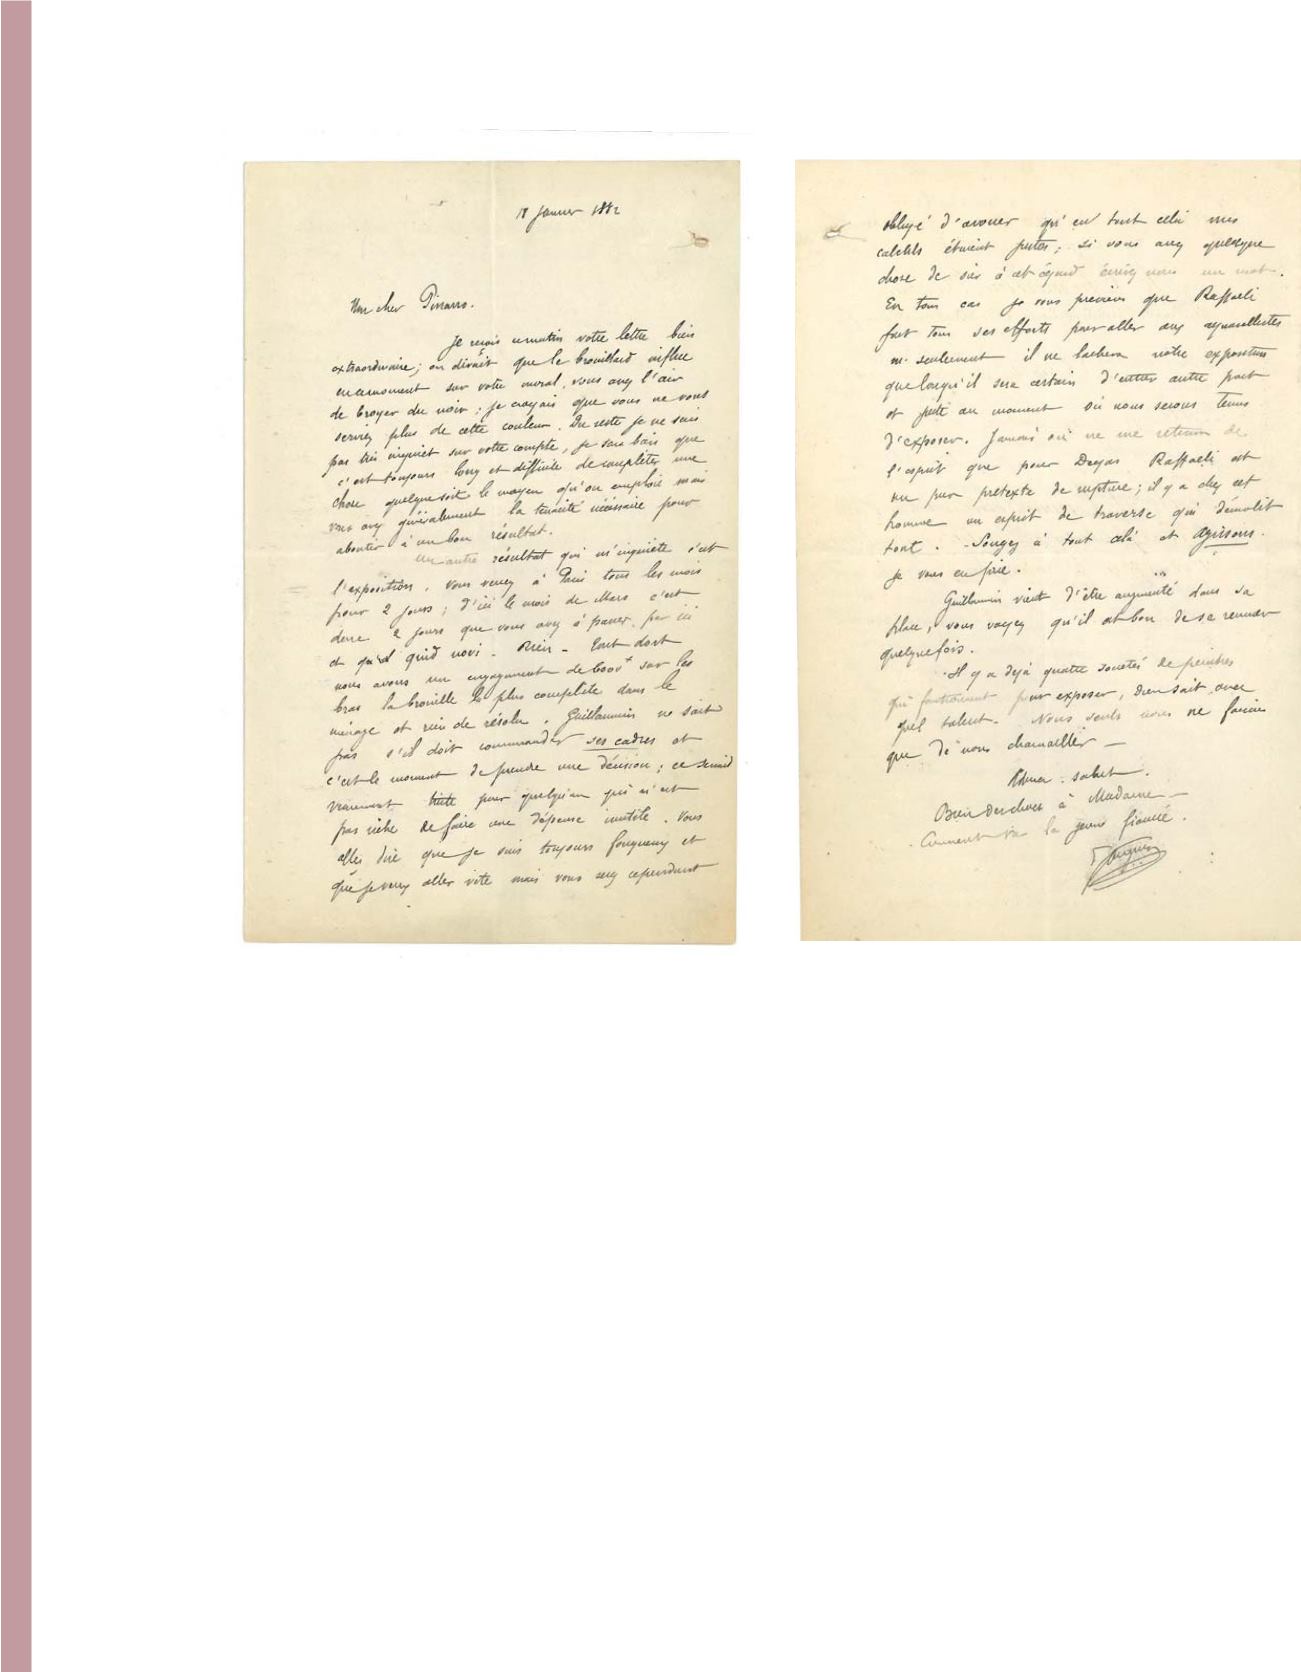 18 Janvier 1882
Mon cher Pissarro.
Je reçois ce matin votre lettre bien
extraordinaire ; on dirait que le brouillard influe
en ce moment sur votre moral, vous avez l'air
de broyer du noir ; je croyais que vous ne vous
serviez plus de cette couleur. Du reste je ne suis
pas très inquiet sur votre compte, je sais bien que
c'est toujours long et difficile de compléter une
chose quelque soit le moyen qu'on emploie mais
vous avez généralement la tenacité nécessaire pour
aboutir à un bon résultat.
Un autre résultat qui m'inquiète c'est
l'exposition, vous venez à Paris tous les mois
pour 2 jours ; d'ici le mois de Mars c'est
donc 2 jours que vous avez à passer par ici
et quid novi - Rien -
nous avons un engagement de 6000f sur les
bras la brouille la plus complète dans le
ménage et rien de résolu. Guillaumin ne sait
pas s'il doit commander ses cadres et
c'est le moment de prendre une décision ; ce serait
vraiment triste pour quelqu'un qui n'est
pas riche de faire une dépense inutile. Vous
allez dire que je suis toujours fougueux et
que je veux aller vite mais vous serez cependant
obligé d'avouer qu'en tout cela mes
calculs étaient justes ; si vous avez quelque
chose de sûr à cet égard écrivez nous un mot.
En tous cas je vous préviens que Raffaeli
fait tous ses efforts pour aller aux aquarellistes
seulement il ne lachera notre exposition
que lorsqu'il sera certain d'entrer autre part
et juste au moment où nous serons tenus
d'exposer. Jamais on ne me retirera de
l'esprit que pour Degas Raffaeli est
un pur pretexte de rupture ; il y a chez cet
homme un esprit de traverse qui démolit
tout. - Songez à tout cela et agissons.
Je vous en prie.
Guillaumin vient d'être augmenté dans sa
place, vous voyez qu'il est bon de se remuer
quelquefois.
Il y a déjà quatre sociétés de peintres
qui fonctionnent pour exposer, dieu sait avec
quel talent. Nous seuls nous ne faisons
que de nous chamailler -
salut.
Bien des choses à Madame -
Comment va la jeune fiancée.